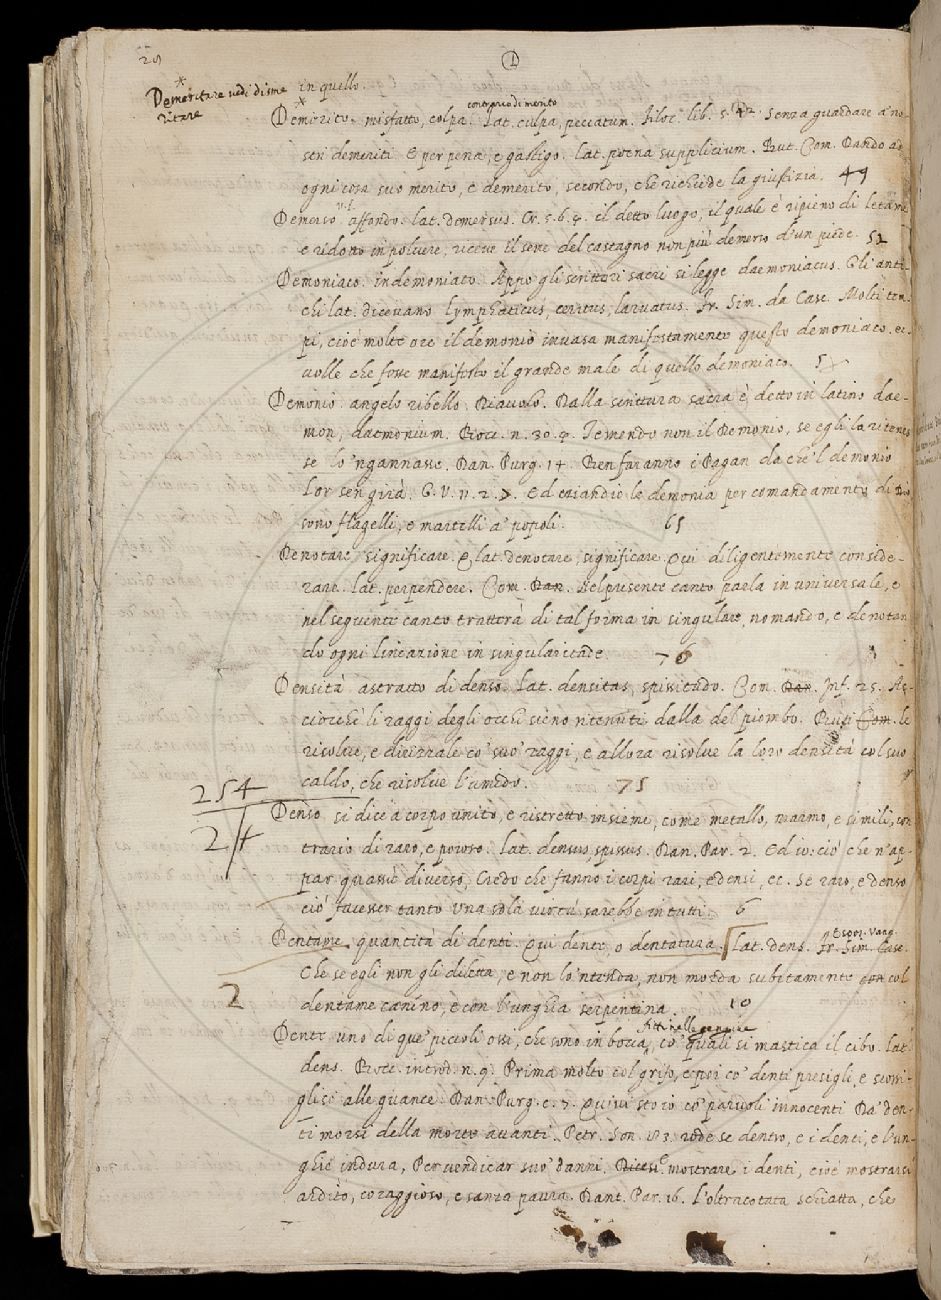 28
D
Demeritare vedi disme
ritare
in quello.
contrario di merito
Demerito. misfatto, colpa. Lat. culpa, peccatum. Filoc. lib. 5. 42. Senza guardare a' no
stri demeriti. E per pena, e gastigo. lat. poena supplicium. But. Com. Dando ad
ogni cosa suo merito, e demerito, secondo, che richiede la giustizia. 49
Demerso affondo. lat. demersus. Cr. 5. 6. 9. il detto luogo, il quale è ripieno di letame
e ridotto in polvere, riceve il seme del castagno non più demerso d'un piede. 52
Demoniaco. indemoniato. Appo gli scrittori sacri si legge daemoniacus. Gli anti-
chi lat. dicevano lymphaticus, ceritus, larvatus. Fr. Sim. da Casc. Molti tem
pi, cioè molte ore il demonio invasa manifestamente questo demoniaco. et
volle che fosse manifesto il grande male di quello demoniaco.
Demonio. angelo ribello. Diavolo. Dalla scrittura sacra è detto in latino dae-
mon, daemonium. Bocc. n. 30. 9. Temendo non il Demonio, se egli la ritenes
se lo 'ngannasse. Dan. Purg. 14. Ben faranno i Pagan da che 'l demonio
Lor sen girà. G. V. 11. 2. 7. Ed eziandio le demonia per comandamento di Dio
sono flagelli, e martelli a' popoli. 65
Denotare significare. E lat. denotare, significare. Qui diligentemente conside-
rare. lat. perpendere. Com. Dan. Nel presente canto parla in universale, e
nel seguente canto tratterà di tal forma in singulare, nomando, e denotan
do ogni lineazione in singularitade. 76
Densità astratto di denso. lat. densitas, spissitudo. Com. Dan. Inf. 25. Ac-
ciocchè li raggi degli occhi sieno ritenuti dalla del piombo. But. Com. le
risolve, e dirizzale co' suo' raggi, e allora risolve la loro densità col suo
caldo, che risolve l'umido. 75
254
24
Denso si dice a corpo unito, e ristretto insieme, come metallo, marmo, e simili, con
trario di raro, e poroso. lat. densus, spissus. Dan. Par. 2. Ed io: ciò che n'ap-
par quassù diverso, Credo che fanno i corpi rari, e densi, ec. Se raro, e denso
ciò facesser tanto Una sola virtù sarebbe in tutti. 6
Espos. Vang.
Dentame. quantità di denti. Qui dente, o dentatura. Lat. dens. Fr. Sim. Casc.
Che se egli non gli diletta, e non lo 'ntenda, non morda subitamente con col
2
dentame canino, e con l'unghia serpentina. 10
fitti nelle gengive
Dente uno di que' piccioli ossi, che sono in bocca, co' quali si mastica il cibo. lat.
dens. Bocc. introd. n. 9. Prima molto col grifo, e poi co' denti presigli, e scossi
glisi alle guance. Dan. Purg. c. 7. Quivi sto io co' parvoli innocenti Da' den-
ti morsi della morte avanti. Petr. Son. 183. rode se dentro, e i denti, e l'un-
ghie indura, Per vendicar suo' danni. Dicesi mostrare i denti, cioè mostrarsi
ardito, coraggioso, e sanza paura. Dant. Par. 16. L'oltracotata schiatta, che